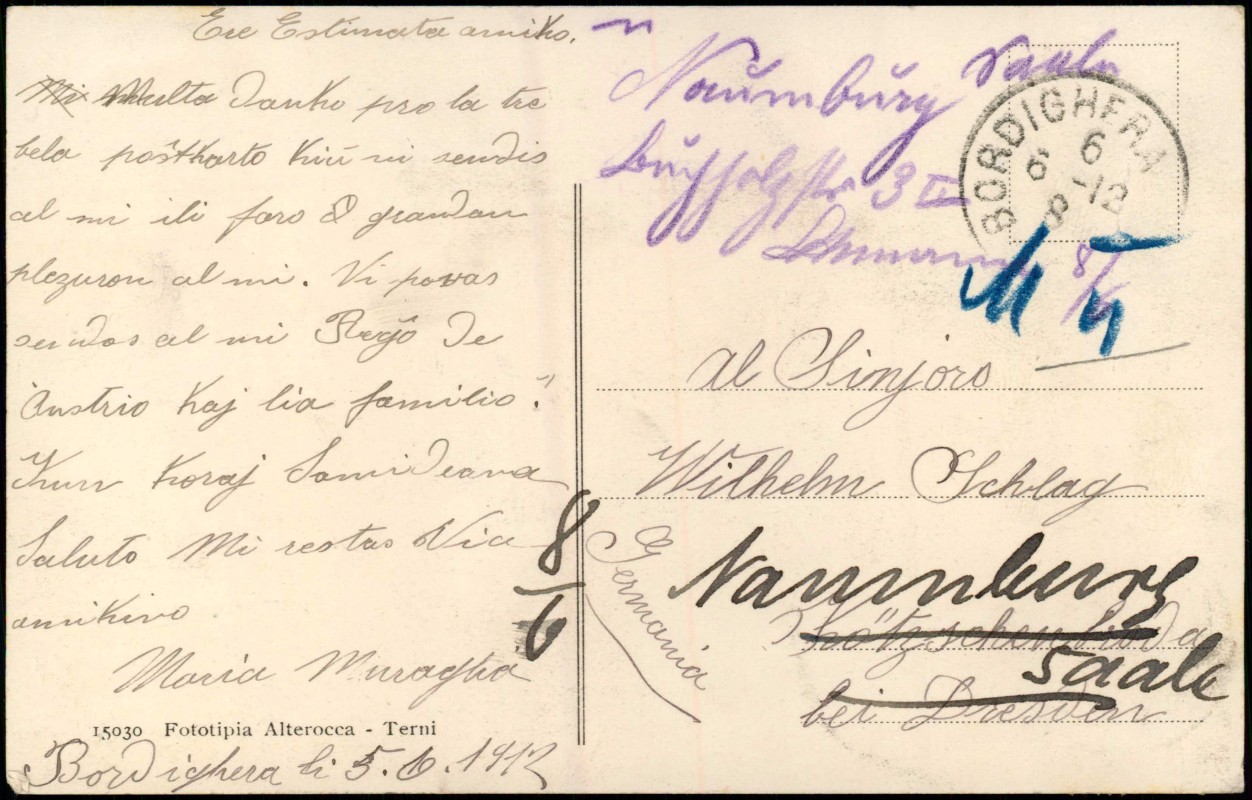 Ere Estimata amiko.
Mi Multa Danko pro la tre
bela poŝtkarto Kiŭ vi sendis
al mi ili faro 8 grandan
plezuron al mi. Vi povas
sendos al mi Reĝo De
Austrio Kaj lia familio".
Kun Koraj Samideana
Saluto Mi restas Via
amikino
Maria Muraglia
15030 Fototipia Alterocca - Terni
Bordighera li 5. 6. 1912
Naumburg Saale
Buchholzstr 3 II
Lehmann 8/6
BORDIGHERA
6 6 -12
8
al Sinjoro
Wilhelm Schlag
Germania
Naumburg
Kötzschenbroda
Saale
bei Dresden
8/6